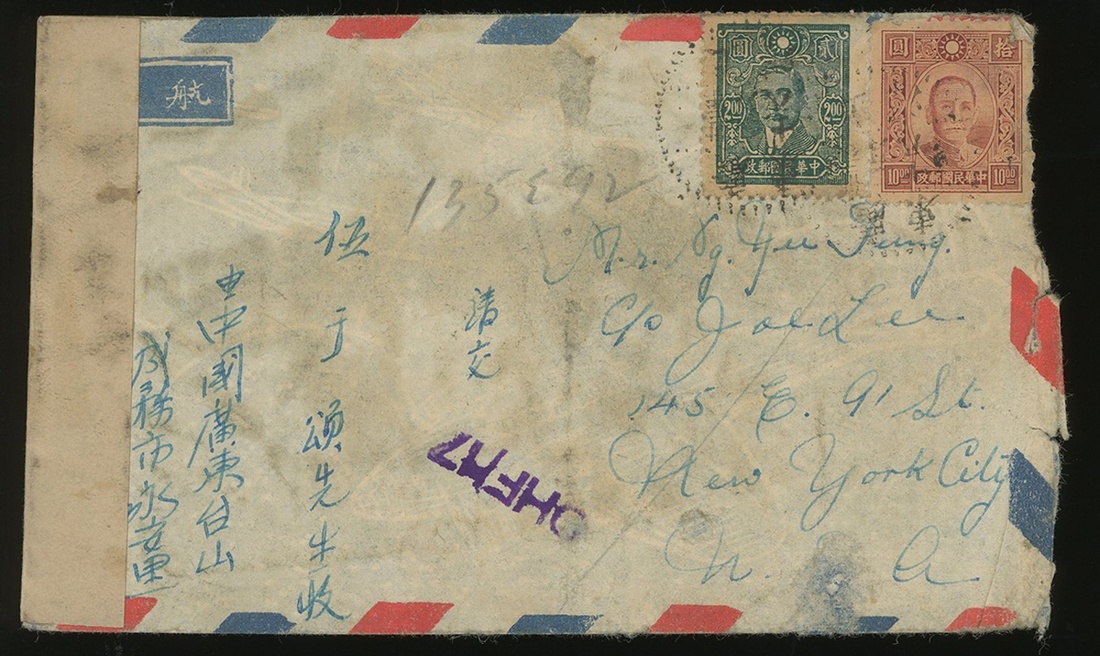 航
圓 貳
2.00 2.00
政郵國民華中
圓 拾
10.00 10.00
政郵國民華中
135 E 92
Mr. Ng. Yee Fung.
c/o Joe Lee
145 E. 91 St.
New York City
請交
伍于頌先生收
中國廣東台山
務市永